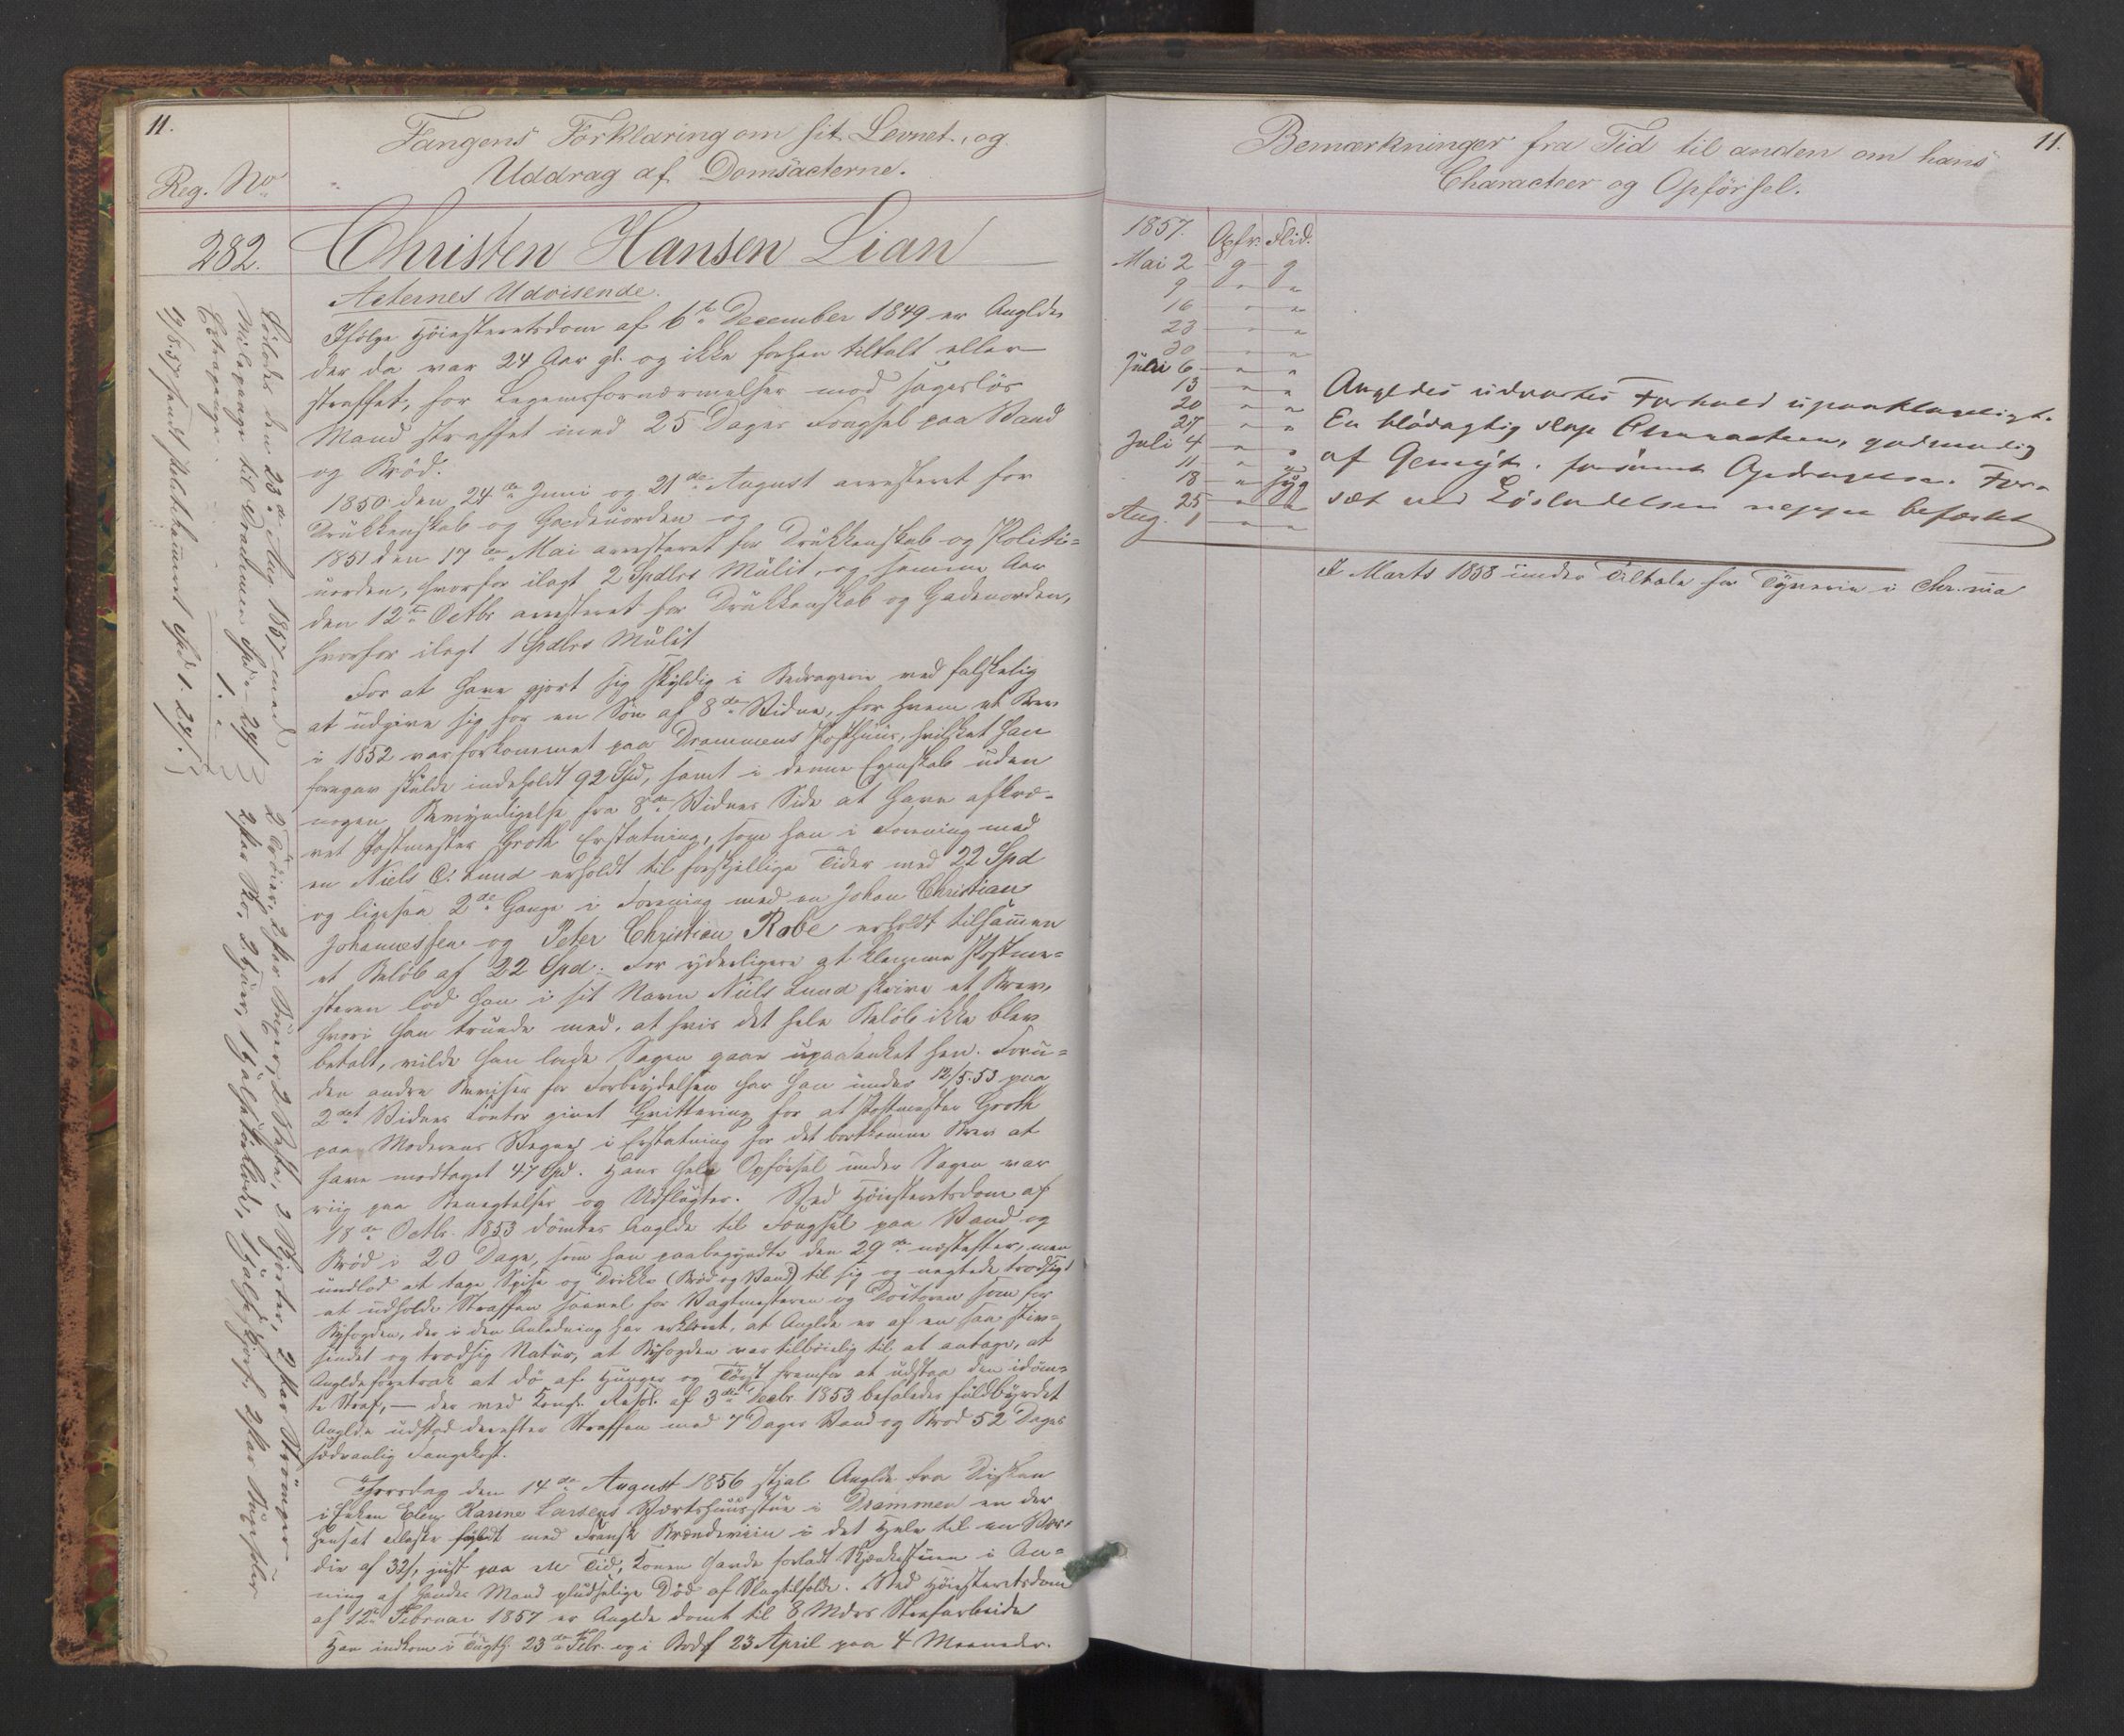 11.
Fangens Forklaring om sit Levnet, og
Uddrag af Domsacterne.
Reg. No
282. Christen Hansen Lian
Acternes Udvisende.
Ifølge Høiesteretsdom af 6te December 1849 er Anglde,
der da var 24 Aar gl. og ikke forhen tiltalt eller
straffet, for Legemsfornærmelser mod sagesløs
Mand straffet med 25 Dages Fængsel paa Vand
og Brød.
1850 den 24de Juni og 21de August arresteret for
Drukkenskab og Gadeuorden og
1851 den 17de Mai arresteret for Drukkenskab og Politi=
uorden, hvorfor ilagt 2 Spdlrs Mulct, og samme Aar
den 12te Octbr arresteret for Drukkenskab og Gadeuorden,
hvorfor ilagt 1 Spdlrs Mulct
For at have gjort sig skyldig i Bedrageri ved falskelig
at udgive sig for en Søn af 8de Vidne, for hvem et Brev
i 1852 var forkommet paa Drammens Posthuus, hvilket han
foregav skulde indeholdt 92 Spd, samt i denne Egenskab uden
nogen Bemyndigelse fra 8de Vidnes Side at have afkræ=
vet Postmester Groth Erstatning, som han i Forening med
en Niels C. Lund erholdt til forskjellige Tider med 22 Spd
og ligesaa 2de Gange i Forening med en Johan Christian
Johannessen og Peter Christian Rabe erholdt tilsammen
et Beløb af 22 Spd: For yderligere at klemme Postme=
steren lod han i sit Navn Niels Lund skrive et Brev,
hvori han truede med, at hvis det hele Beløb ikke blev
betalt, vilde han lade Sagen gaae upaaanket hen. Foru=
den andre Beviser for Forbrydelsen har han under 12/5.53 paa
2det Vidnes Contor givet Qvittering for at Postmester Groth
paa Moderens Vegne i Erstatning for det bortkomne Brev at
have modtaget 47 Spd. Hans hele Opførsel under Sagen var
riig paa Benegtelser og Udflugter. Ved Høiesteretsdom af
18de Octbr. 1853 dømtes Anglde til Fængsel paa Vand og
Brød i 20 Dage, som han paabegyndte den 29de næstefter, men
undlod at tage Spise og Drikke (Brød og Vand) til sig og negtede trodsigt
at udholde Straffen saavel for Vagtmesteren og Doctoren som for
Byfogden, der i den Anledning har erklæret, at Anglde er af en saa stiv=
sindet og trodsig Natur, at Byfogden var tilbøielig til at antage, at
Anglde foretrak at dø af Hunger og Tørst fremfor at udstaa den idøm=
te Straf, — der ved Kongl. Resol. af 3die Decbr 1853 befaledes fuldbyrdet
Anglde udstod derefter Straffen med 7 Dages Vand og Brød 52 Dages
sædvanlig Fangekost.
Thorsdag den 14de August 1856 stjal Anglde fra Disken
i Enken Elen Karine Larsens Værtshuusstue i Drammen en der
hensat Flaske fyldt med Fransk Brændeviin i det Hele til en Vær=
die af 32 s, just paa en Tid, Konen havde forladt Skjænkestuen i An=
ning af hendes Mand pludselige Død af Slagtilfælde. Ved Høiesteretsdom
af 12te Februar 1857 er Anglde dømt til 8 Mdrs Strafarbeide
Han indkom i Tugth. 23de Febr. og i Bodsf 23 April paa 4 Maaneder.
Løslodes den 23de Aug. 1857 med
Milepenge til Drammen Spd. - 24 s
Extrapenge 1. -
Spd 1. 24 s.
19/8.57 sendt Politikammeret
2 Trøier, 2 Par Buxer, 2 Veste, 3 Skjorter, 2 Par Strømper
2 Par Sko, 2 Huer, 1 Halstørklæde, 1 Halsskjorte, 2 Par Buxeseler
Bemærkninger fra Tid til anden om hans
Characteer og Opførsel.
11.
1857. Opfr. Flid.
Mai 2 g g
9 " "
16 " "
23 " "
30 " "
Juni 6 " "
13 " "
20 " "
27 " "
Juli 4 " "
11 " "
18 " syg
25 " "
Aug. 1 " "
Angldes udvortes Forhold upaaklageligt.
En blødagtig slap Characteer, godmodig
af Gemyt. forsømt Opdragelse. For=
sæt ved Løsladelsen neppe befæstet
I Marts 1858 under Tiltale for Tyverie i Chr.nia